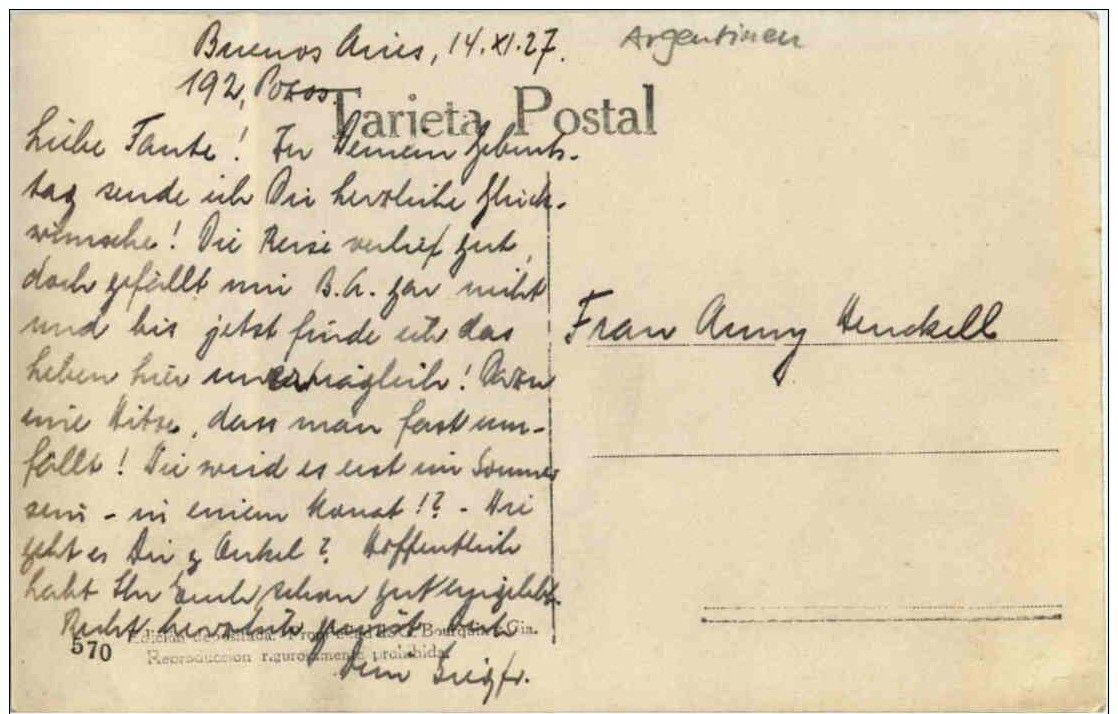 Buenos Aires, 14.XI.27.
Argentinien
192, Pozos.
Tarjeta Postal
Liebe Tante! Zu Deinem Geburts-
tag sende ich Dir herzliche Glück-
wünsche! Die Reise verlief gut,
doch gefällt mir B.A. gar nicht
und bis jetzt finde ich das
Leben hier unerträglich! Dazu
eine Hitze, dass man fast um-
fällt! Wie wird es erst im Sommer
sein - in einem Monat!? - Wie
geht es Dir & Onkel? Hoffentlich
habt Ihr Euch schon gut eingelebt.
Recht herzlich grüßt Dich
Dein Siegfr.
Frau Anny Henckell
570
Bourquin & Cia.
Reproduccion rigurosamente prohibida